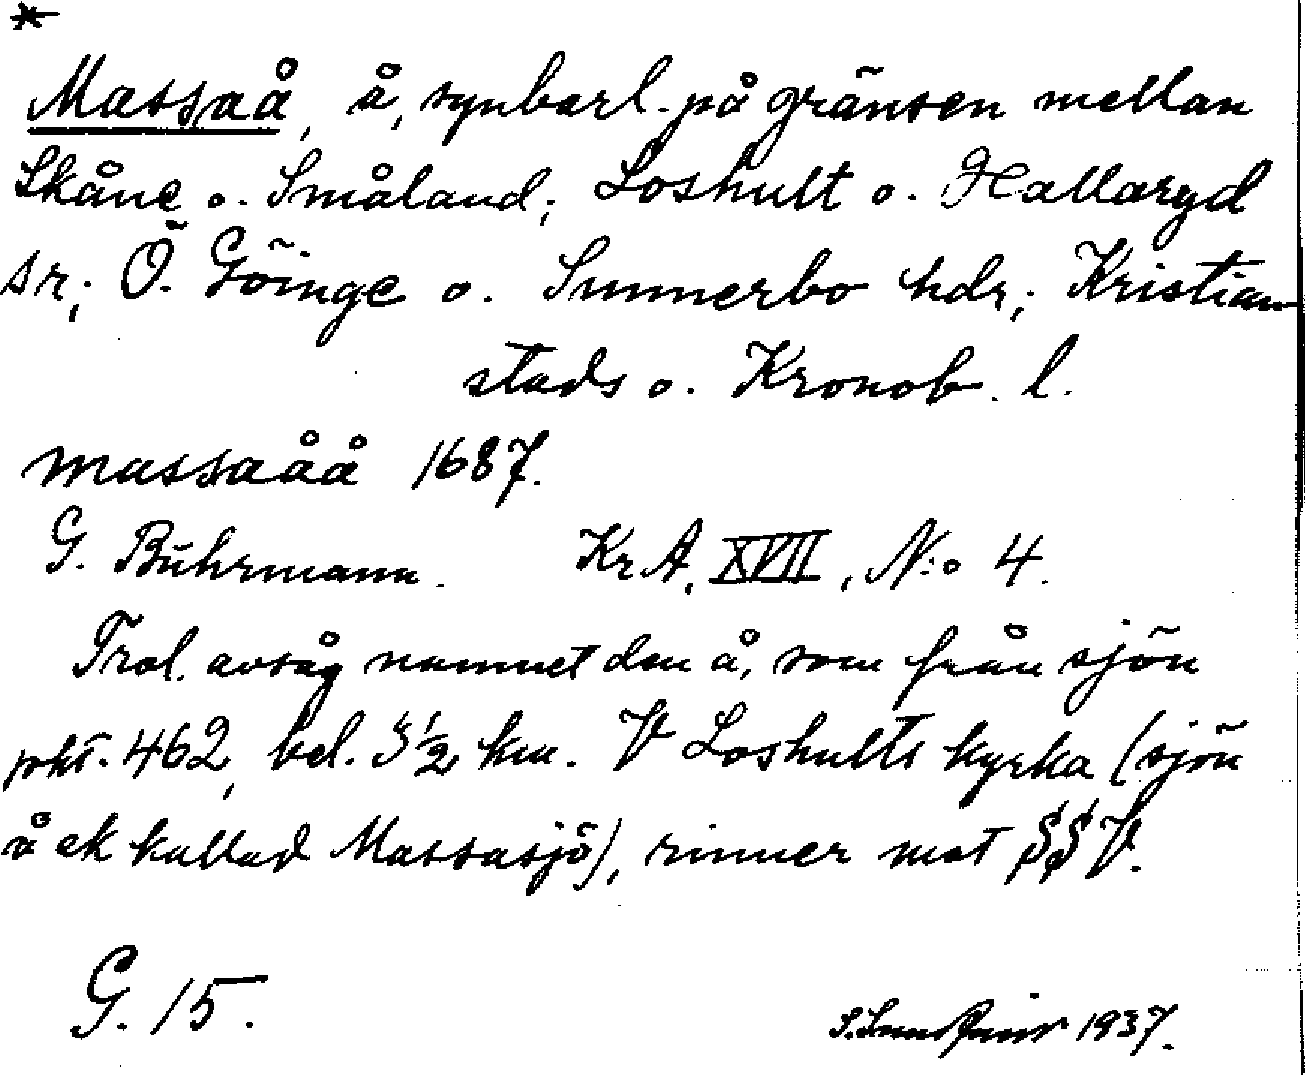 *
Massaå, å, synbarl. på gränsen mellan
Skåne o. Småland; Loshult o. Hallaryd
sr; Ö. Göinge o. Sunnerbo hdr; Kristian
stads o. Kronob. l.
massaåå 1687.
G. Buhrmann. KrA, XVII, N:o 4.
Trol. avsåg namnet den å, som från sjön
pkt. 462, bel. 3 1/2 km. V Loshults kyrka (sjön
å ek kallad Massasjö), rinner mot SSV.
G. 15.
1937.